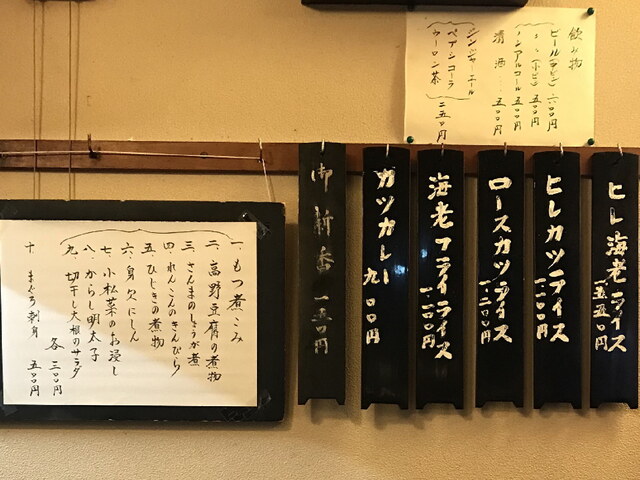 飲み物
ビール(ラビン) 六〇〇円
〃 (小ビン) 五〇〇円
ノンアルコール 五〇〇円
清酒 五〇〇円
ジンジャーエール
ペプシコーラ
ウーロン茶
二五〇円
ヒレ海老ライス 一、五五〇円
ヒレカツライス 一、二〇〇円
ロースカツライス 一、二〇〇円
海老フライライス 一、二〇〇円
カツカレー 九〇〇円
御新香 一五〇円
一、もつ煮こみ
二、高野豆腐の煮物
三、さんまのしょうが煮
四、れんこんのきんぴら
五、ひじきの煮物
六、身欠にしん
七、小松菜のお浸し
八、からし明太子
九、切干し大根のサラダ
各 三〇〇円
十、まぐろ刺身 五〇〇円